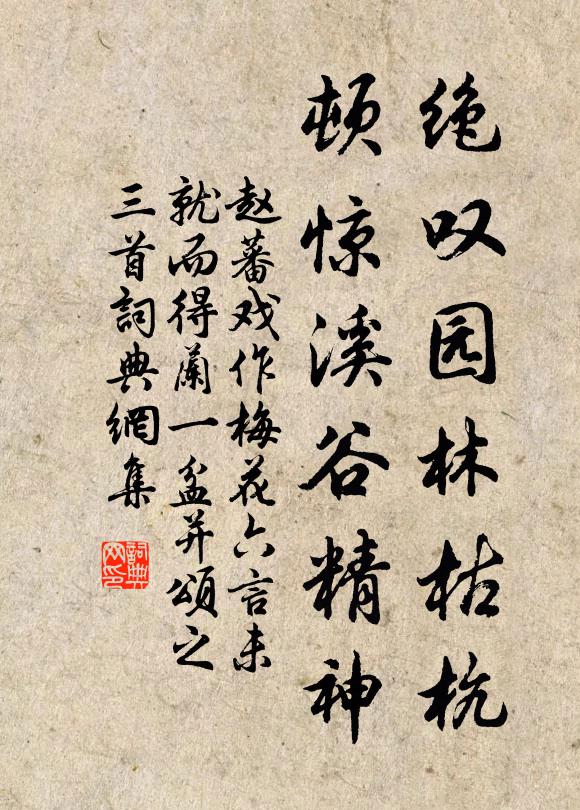 绝叹园林枯杭
顿惊溪谷精神
赵蕃戏作梅花六言未
就而得兰一盆并颂之
三首詞典網集
詞典
网印